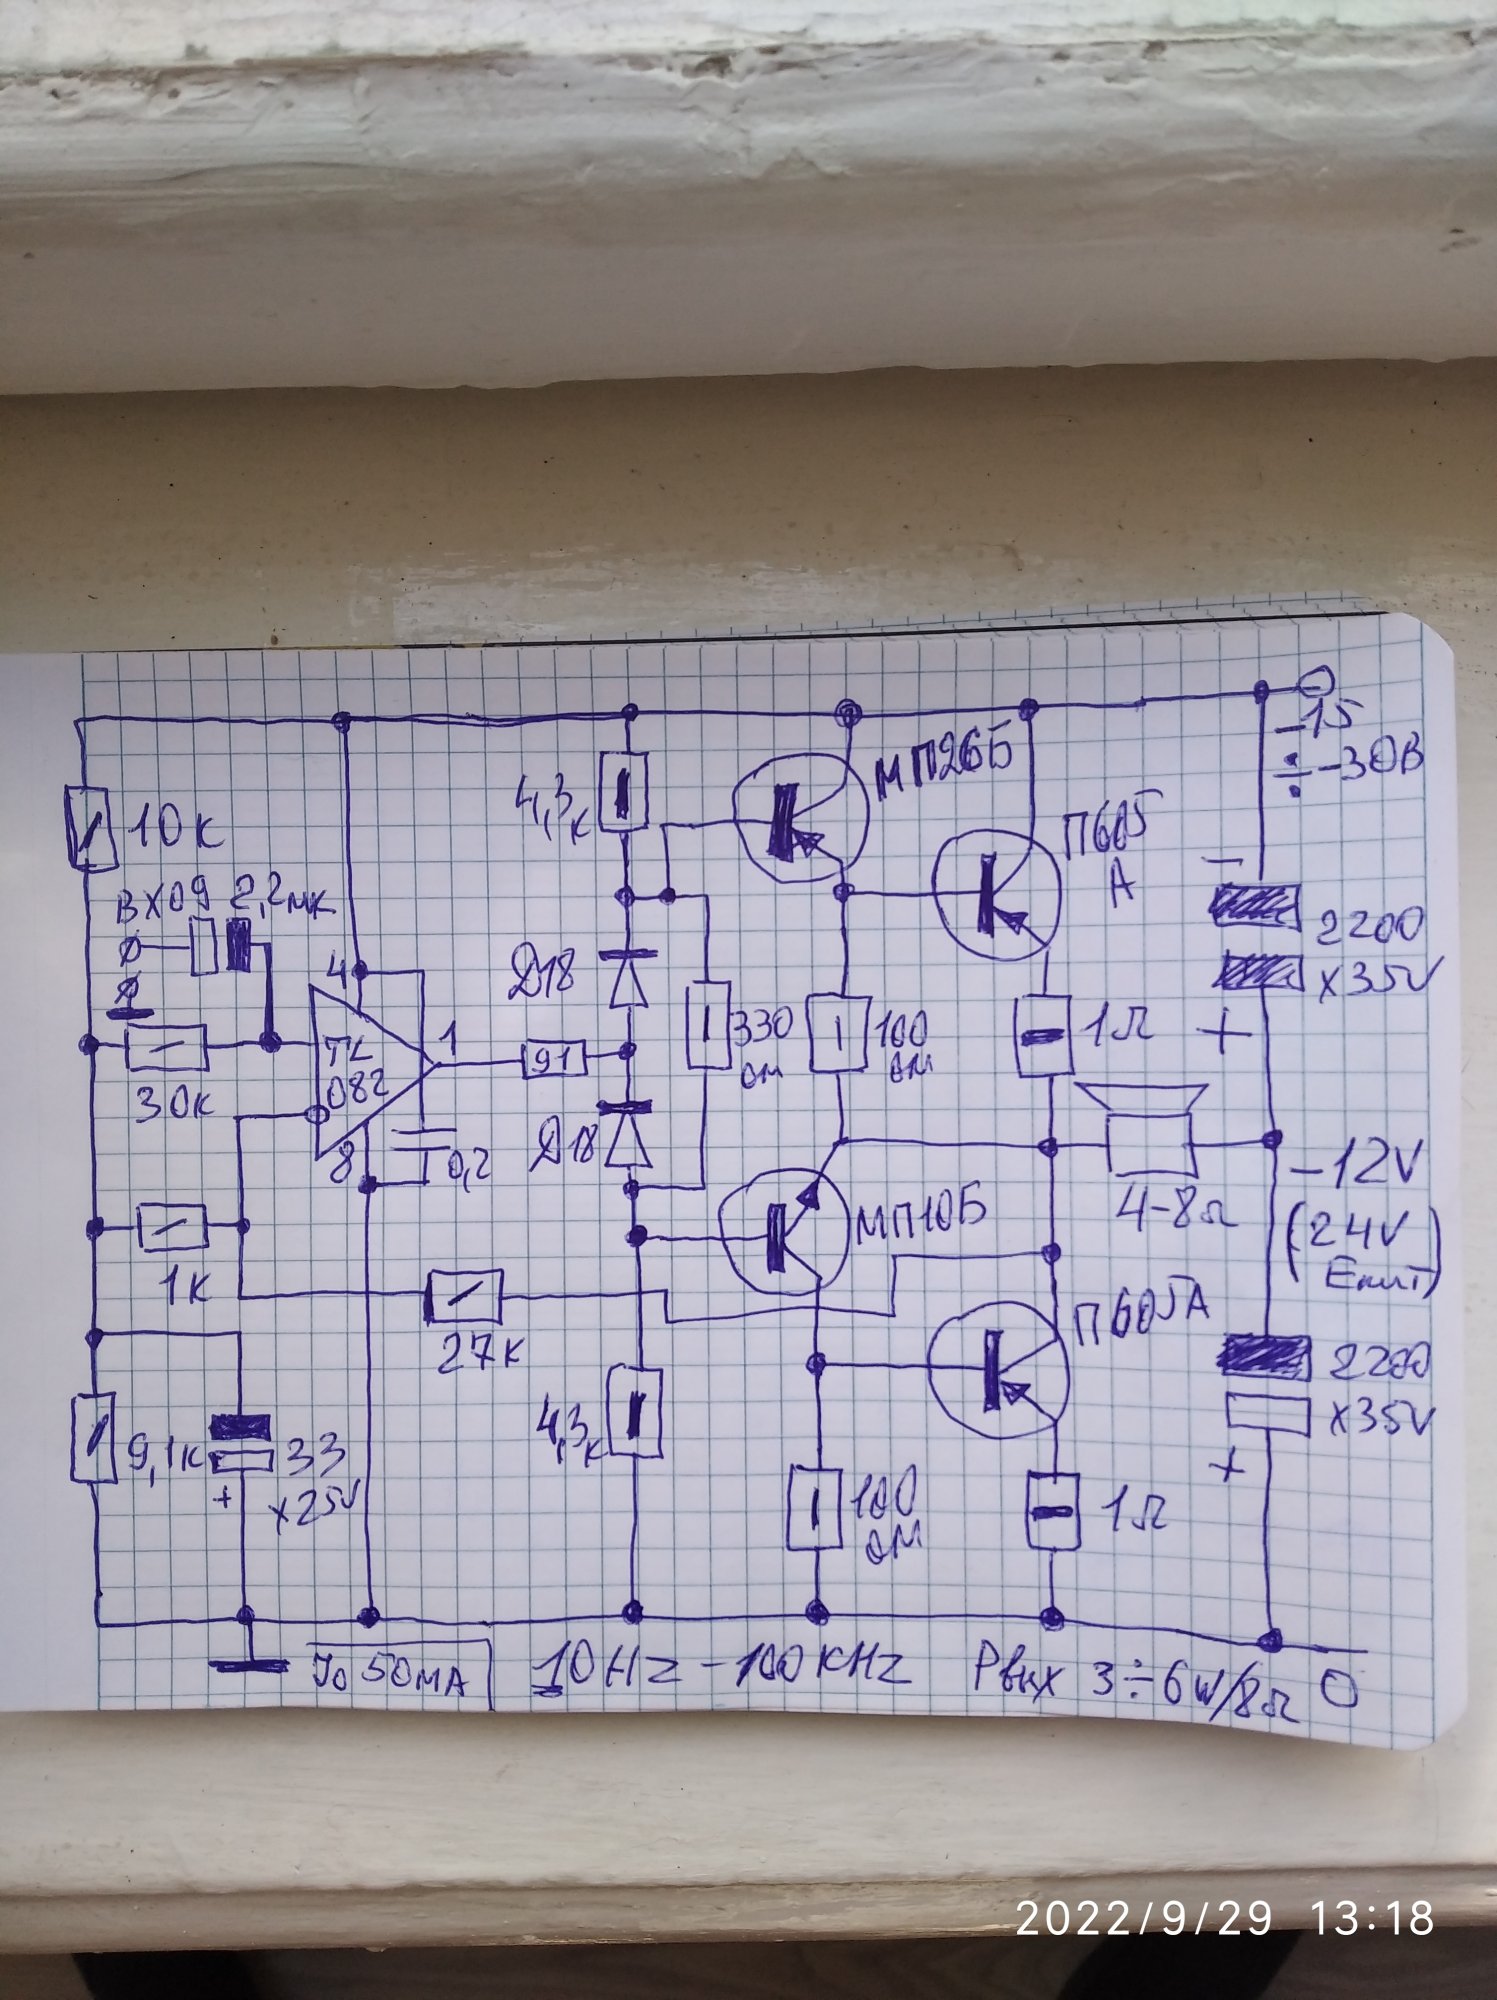 -15
÷ -30В
МП26Б
4,3к
П605
А
10к
ВХОД 2,2мк
2200
x35V
-
+
4
Д18
1
TL
082
91
330
ом
100
ом
1Ω
30к
8
0,2
Д18
-12V
(24V
Епит)
4-8Ω
МП10Б
1к
27к
П605А
2200
x35V
+
4,3к
9,1к
33
x25V
+
100
ом
1Ω
Jo 50мА
10Hz - 100KHz
Рвых 3÷6W/8Ω
0
2022/9/29 13:18